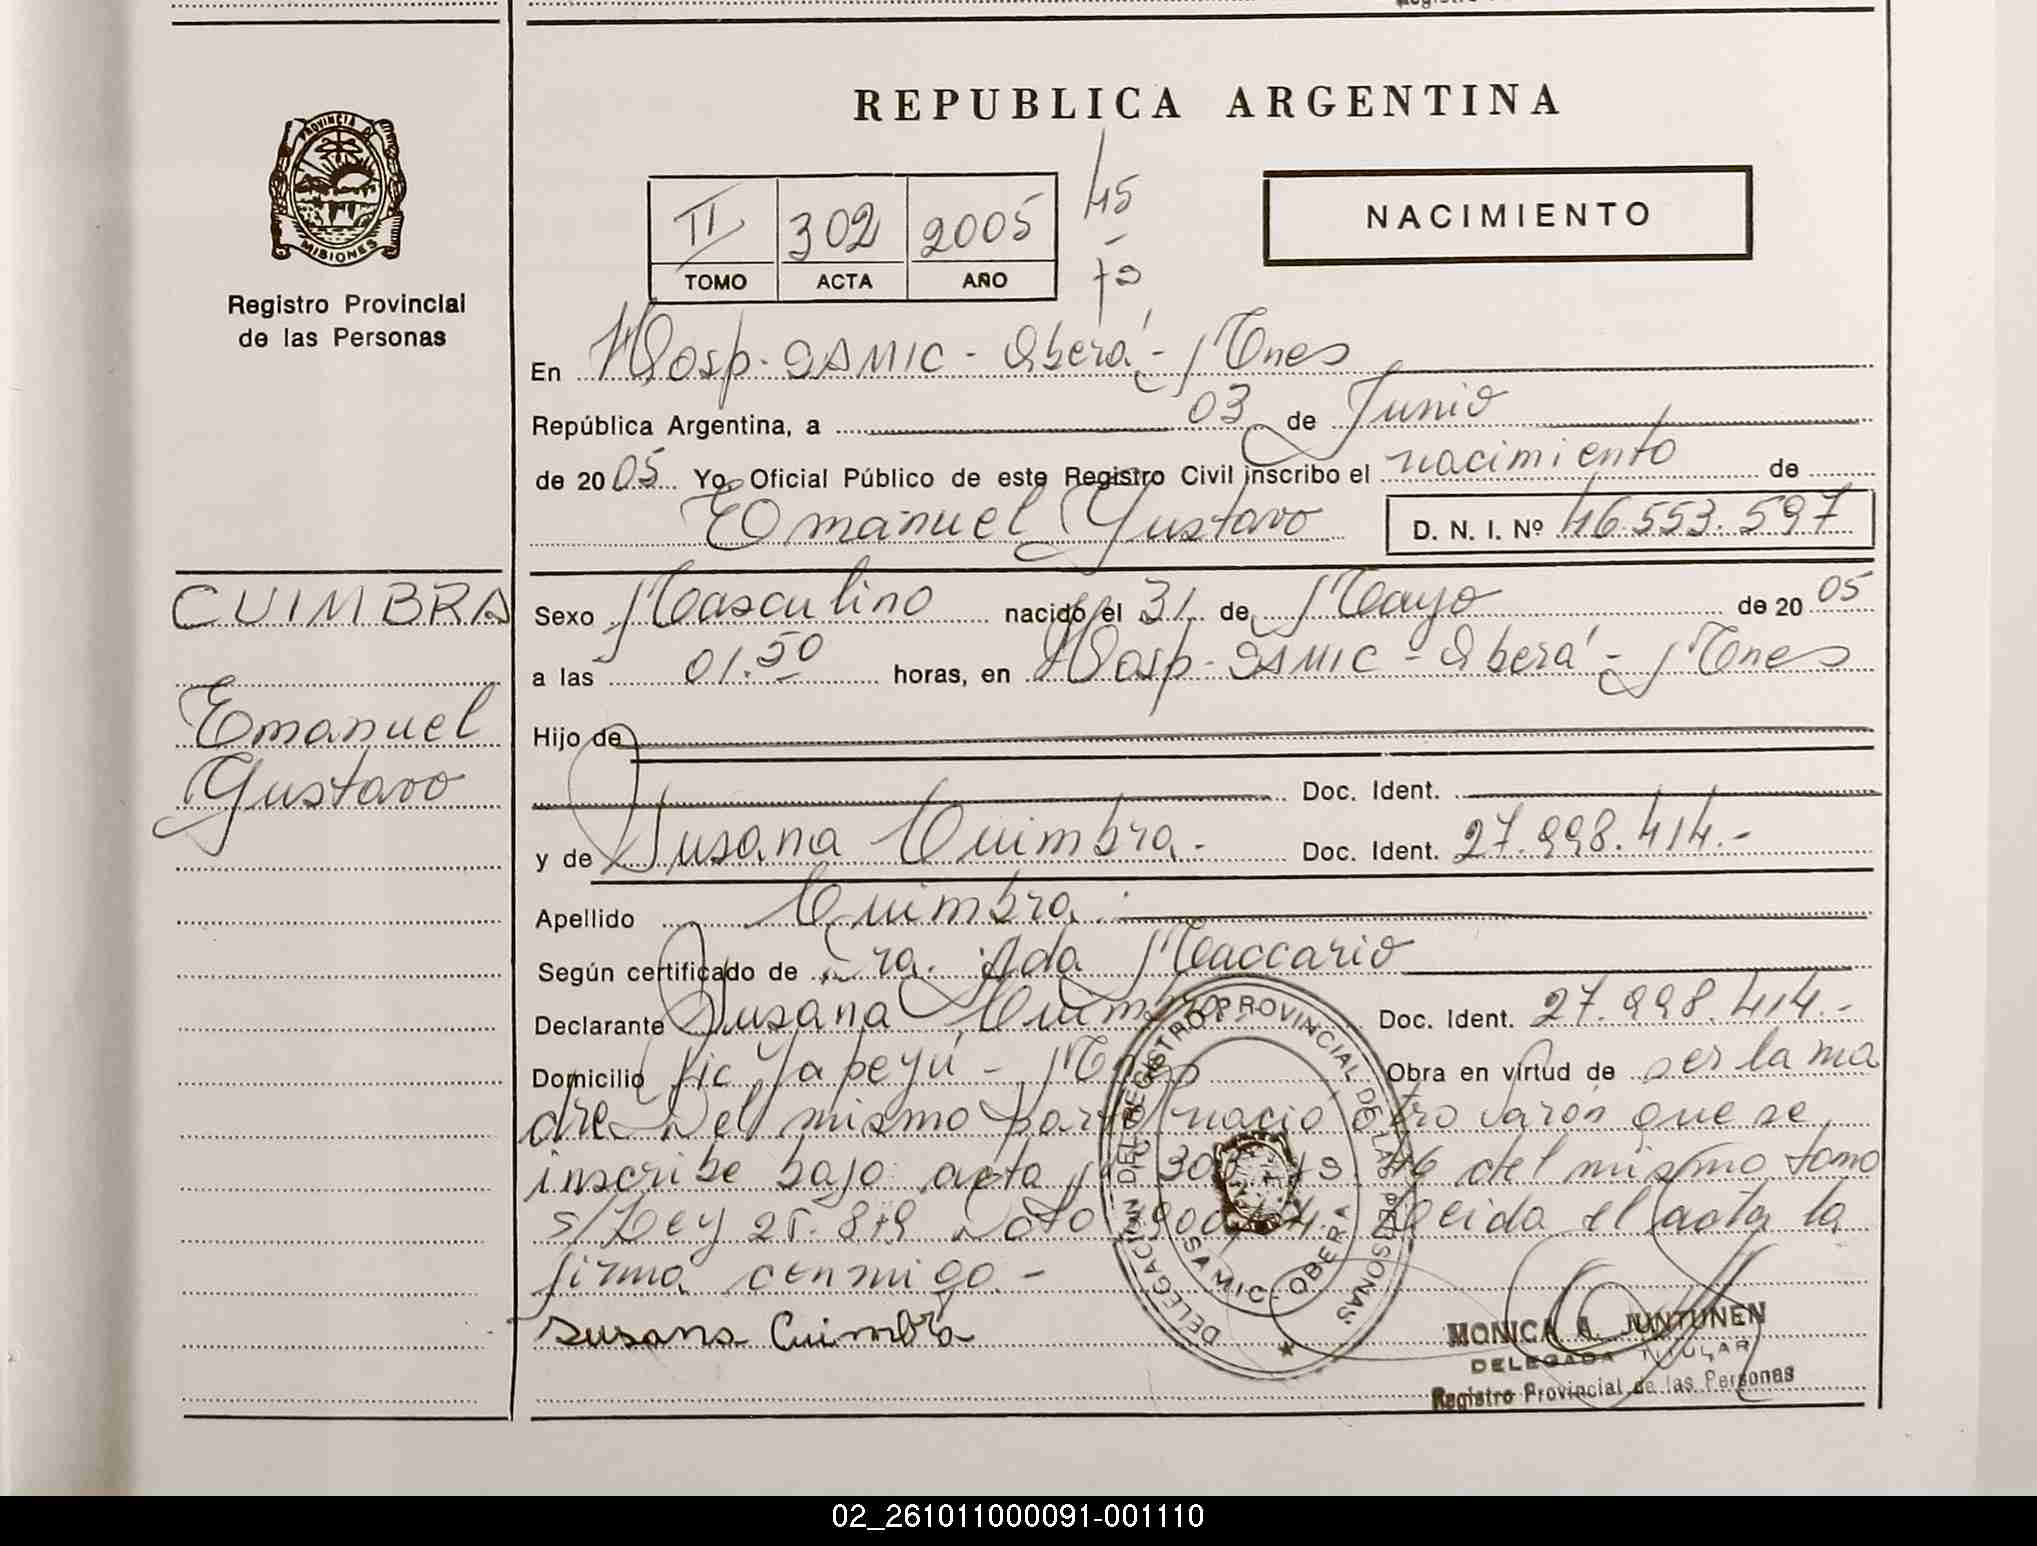 REPUBLICA ARGENTINA
PROVINCIA DE MISIONES
Registro Provincial
de las Personas
II 302 2005
TOMO ACTA AÑO
NACIMIENTO
En Hosp. SAMIC - Oberá - Mnes
República Argentina, a 03 de Junio
de 2005 Yo, Oficial Público de este Registro Civil inscribo el nacimiento de
Emanuel Gustavo D. N. I. Nº 46.553.597
CUIMBRA
Emanuel
Gustavo
Sexo Masculino nacido el 31 de Mayo de 2005
a las 01.50 horas, en Hosp. SAMIC - Oberá - Mnes
Hijo de
Doc. Ident.
y de Susana Cuimbra.- Doc. Ident. 27.998.414.-
Apellido Cuimbra.
Según certificado de Dra. Ada Maccario
Declarante Susana Cuimbra Doc. Ident. 27.998.414.-
Domicilio Pic. Yapeyú - Mnes Obra en virtud de ser la ma
dre Del mismo parto nació otro varón que se
inscribe bajo acta 46 del mismo tomo
s/Ley 25. Leída el acta la
firma conmigo.-
Susana Cuimbra
DELEGACION DEL REGISTRO PROVINCIAL DE LAS PERSONAS
SAMIC - OBERA
MONICA A. JUNTUNEN
DELEGADA TITULAR
Registro Provincial de las Personas
02_261011000091-001110